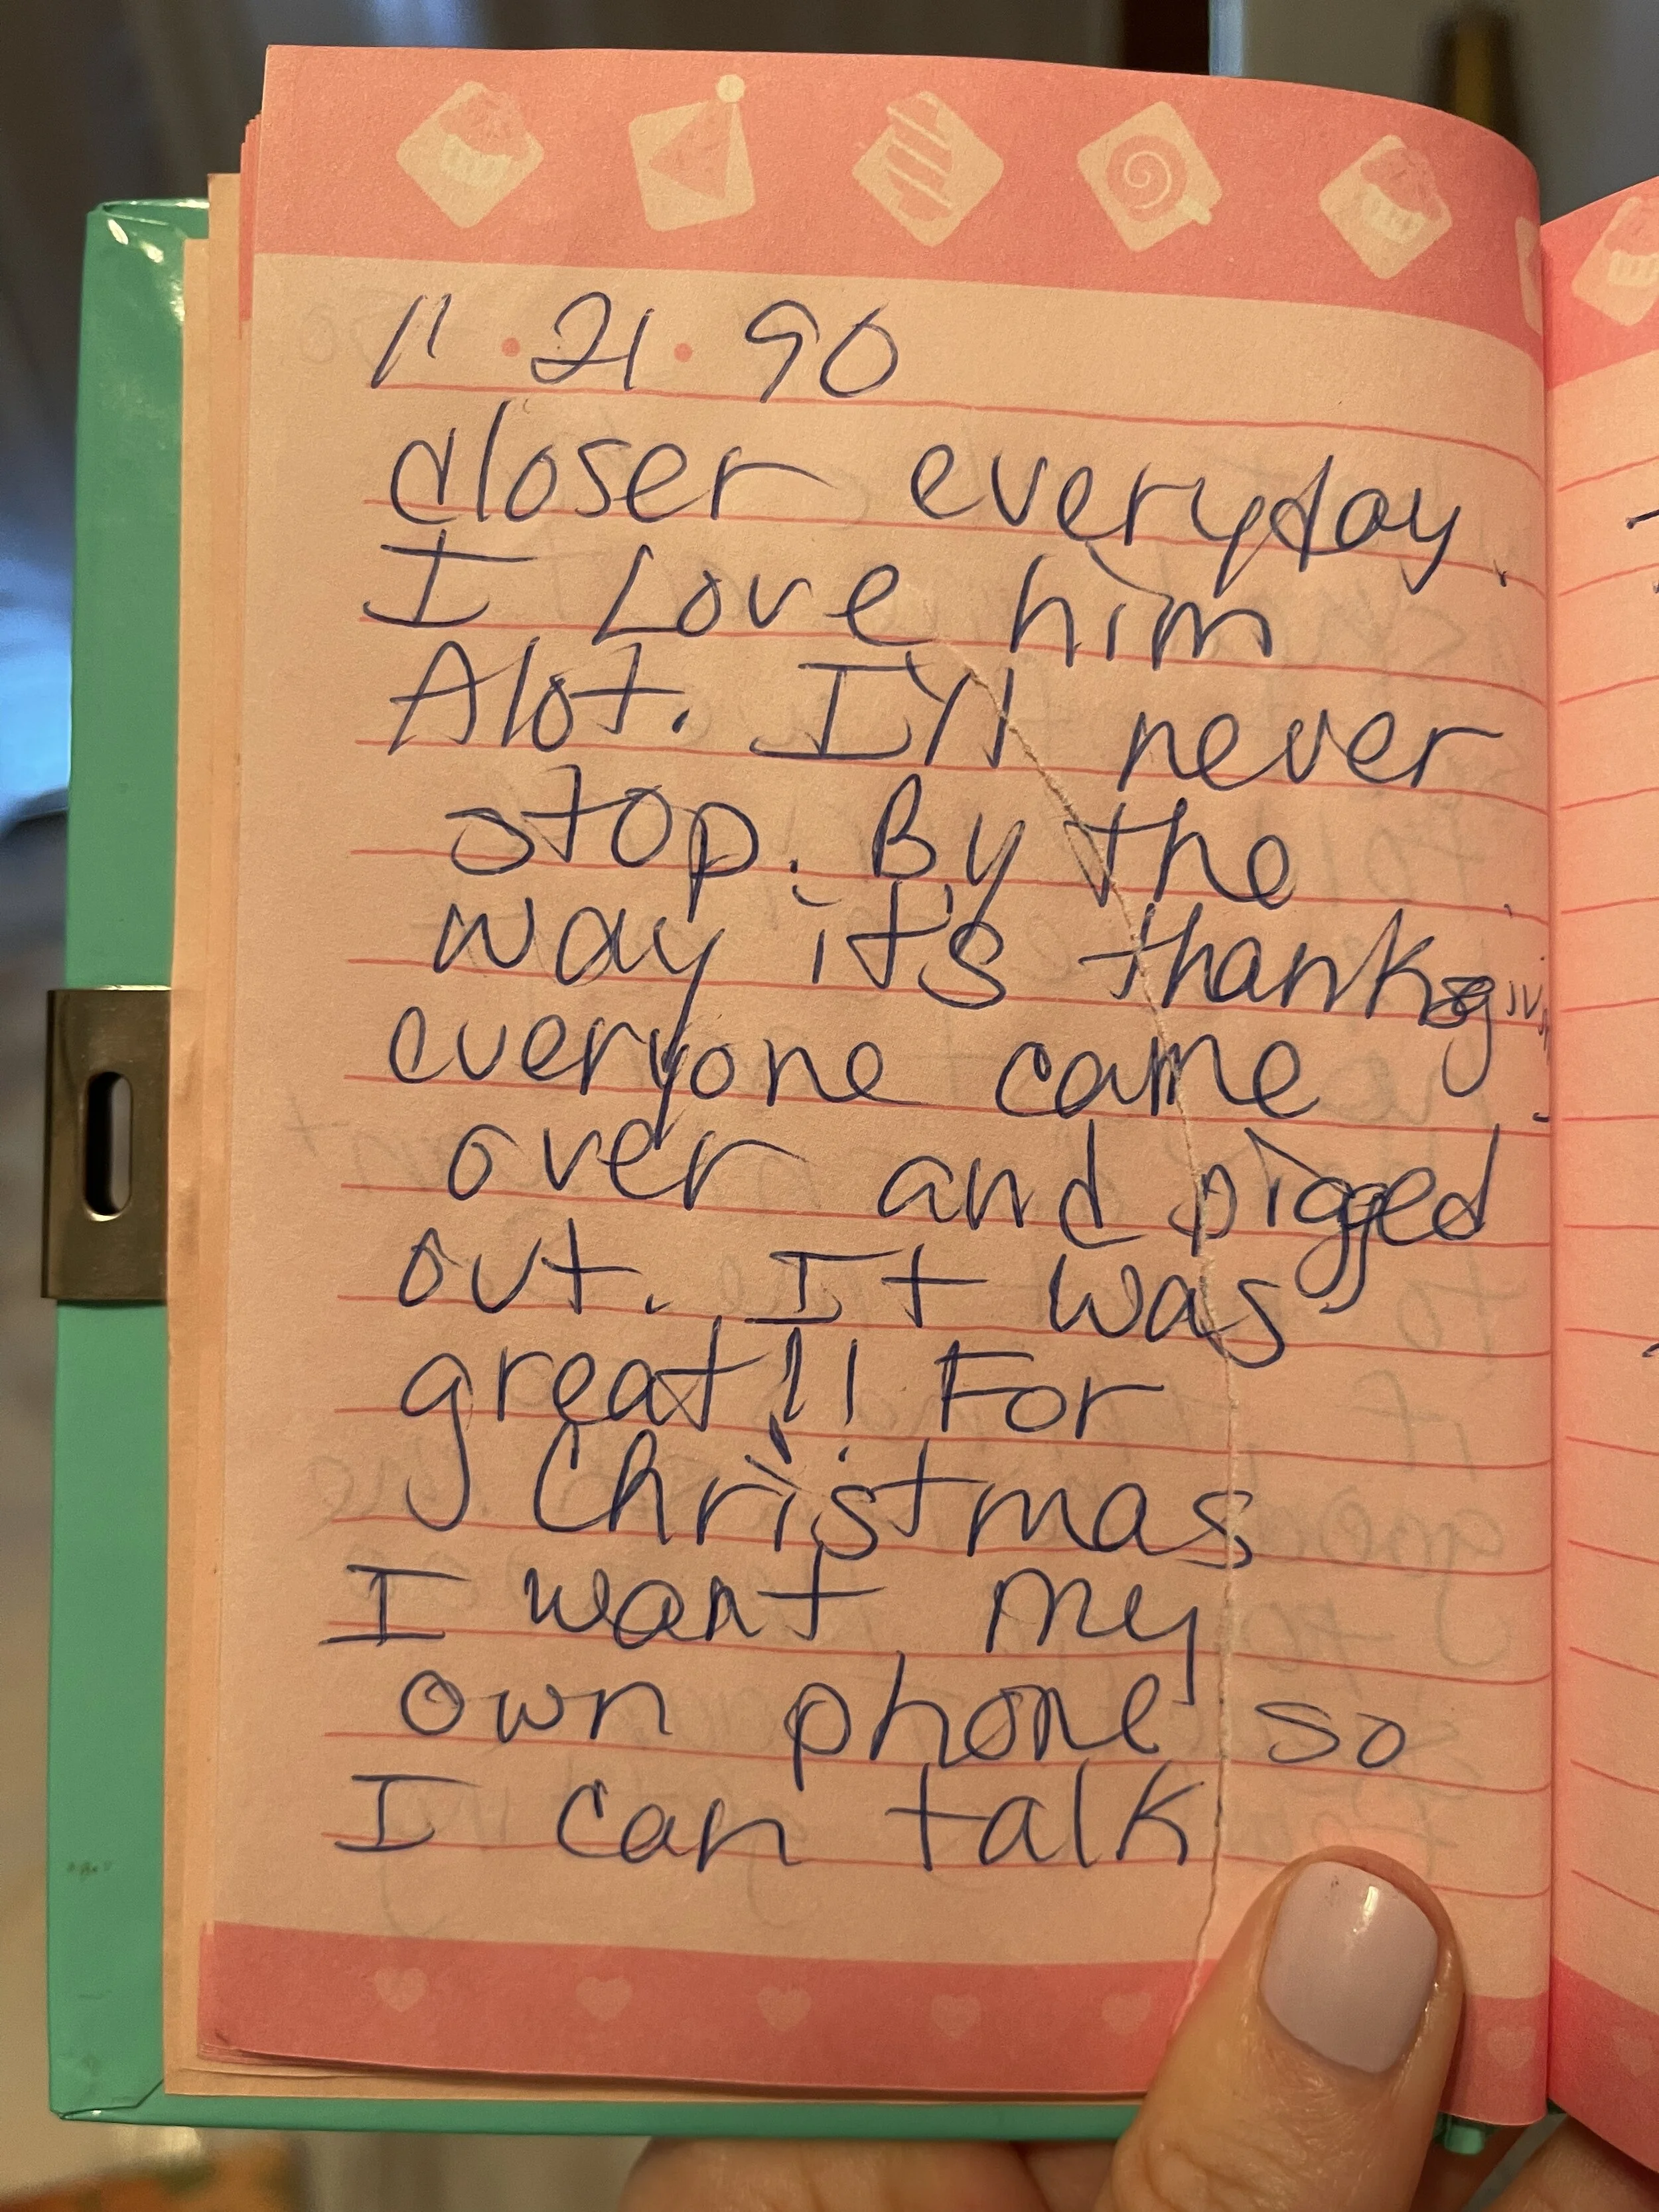 11 · 21 · 90
closer everyday.
I Love him
Alot. I'll never
stop. By the
way it's thanksgiving
everyone came
over and pigged
out. It was
great!! For
Christmas
I want my
own phone so
I can talk